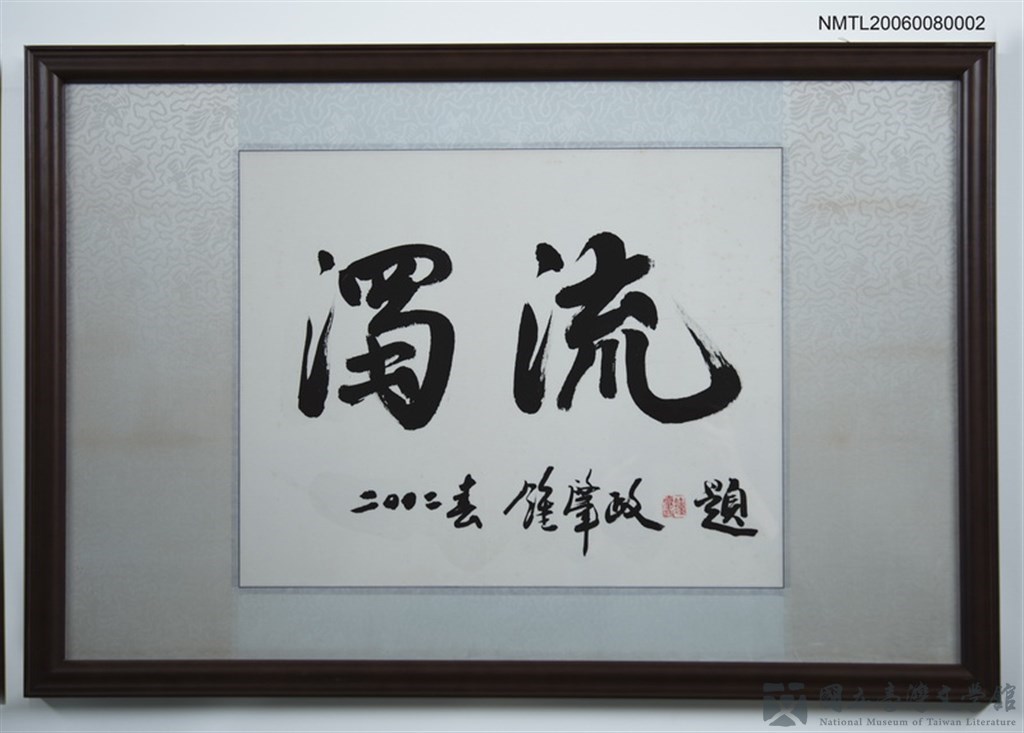 NMTL20060080002
濁流
二〇〇二春 鍾肇政 題
國立臺灣文學館
National Museum of Taiwan Literature